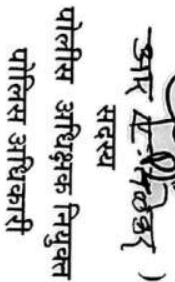 आर )
सदस्य
पोलीस अधिक्षक नियुक्त
पोलिस अधिकारी